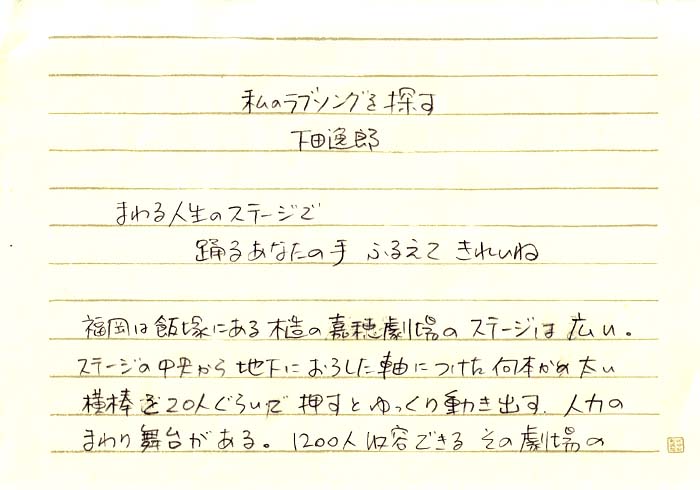 私のラブソングを探す
下田逸郎
まわる人生のステージで
踊るあなたの手 ふるえて きれいね
福岡は飯塚にある木造の嘉穂劇場のステージは広い。
ステージの中央から地下におろした軸につけた何本かの太い
横棒を20人ぐらいで押すとゆっくり動き出す、人力の
まわり舞台がある。1200人収容できるその劇場の